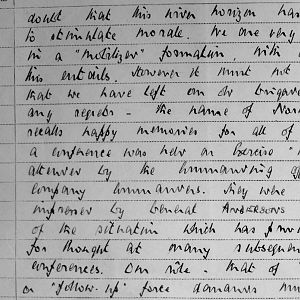 doubt that this wider horizon has
to stimulate morale. We are very
in a "Mobilizer" formation, with
this entails. However it must not
that we have left our old brigade
any regrets - the name of Nor
recalls happy memories for all of
a conference was held on Exercise "
attended by the Commanding Off
Company Commanders. They were
impressed by General ANDERSONS
of the situation which has prov
for thought at many subsequen
conferences. Our rôle - that of
a "follow-up" force demands mu